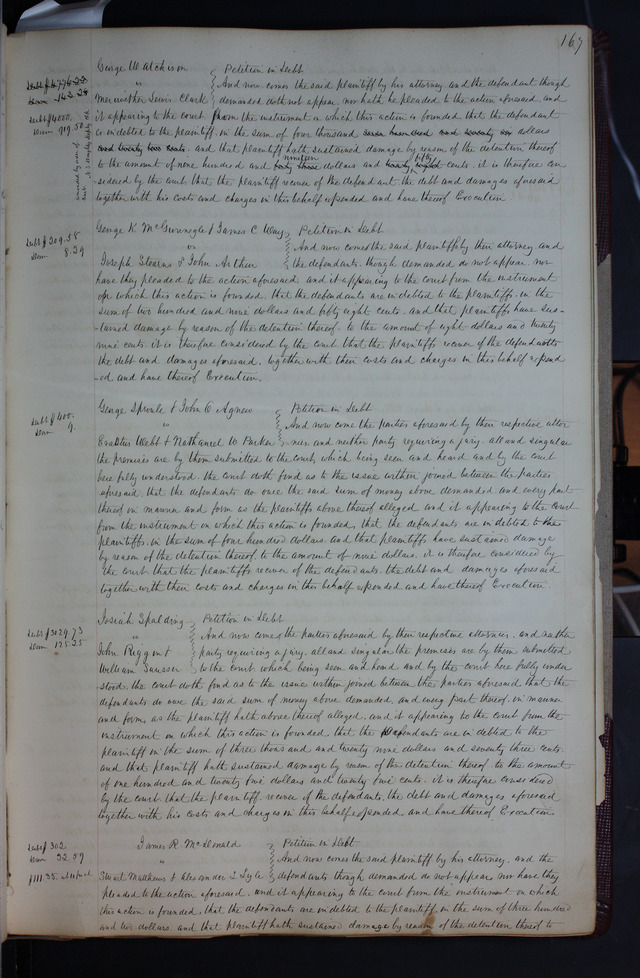 167
George W Atchison } Petition in Debt
Debt $4774.22
Dam 143.28
And now comes the said plaintiff by his attorney and the defendant though
Meriwether Lewis Clark } demanded doth not appear nor hath he pleaded to the action aforesaid and
Debt $4000.
Dam 119.50
it appearing to the court from the instrument on which this action is founded that the defendant
is indebted to the plaintiff in the sum of four thousand seven hundred and seventy dollars
and twenty two cents. and that plaintiff hath sustained damage by reason of the detention thereof
nineteen fifty
to the amount of one hundred and forty three dollars and twenty eight cents. it is therefore con
sidered by the court that the plaintiff recover of the defendant the debt and damages aforesaid
together with his costs and charges in this behalf expended and have thereof Execution
George K McGunnegle & James C Way } Petition in Debt
Debt $209.58
Dam 8.29
vs And now comes the said plaintiffs by their attorney and
Joseph Stearns & John Arthur } the defendants. though demanded do not appear nor
have they pleaded to the action aforesaid and it appearing to the court from the instrument
on which this action is founded. that the defendants are indebted to the plaintiffs. in the
sum of two hundred and nine dollars and fifty eight cents. and that plaintiffs have sus-
-tained damage by reason of the detention thereof. to the amount of eight dollars and twenty
nine cents. it is therefore considered by the court that the plaintiffs recover of the defendants
the debt and damages aforesaid, together with their costs and charges in this behalf expend
-ed and have thereof Execution.
George Sproule & John O Agnew } Petition in Debt
Debt $400.
Dam 9.
" And now come the parties aforesaid by their respective attor
Erastus Webb & Nathaniel W Parker } -nies and neither party requiring a jury. all and singular
the premises are by them submitted to the court, which being seen and heard and by the court
here fully understood. the court doth find as to the issue within joined between the parties
aforesaid, that the defendants do owe the said sum of money above demanded and every part
thereof in manner and form as the plaintiffs above thereof alleged and it appearing to the court
from the instrument on which this action is founded, that the defendants are indebted to the
plaintiffs. in the sum of four hundred dollars. and that plaintiffs have sustained damage
by reason of the detention thereof to the amount of nine dollars. it is therefore considered by
the court. that the plaintiffs recover of the defendants. the debt and damages aforesaid
together with their costs and charges in this behalf expended and have thereof Execution.
Josiah Spalding } Petition in Debt
Debt $3029.73
Dam 125.25
" And now comes the parties aforesaid by their respective attornies. and neither
John Riggin & } party requiring a jury. all and singular the premises are by them submitted
William } to the court which being seen and heard and by the court here fully under
stood. the court doth find as to the issue within joined between the parties aforesaid, that the
defendants do owe the said sum of money above demanded, and every part thereof. in manner
and form as the plaintiff hath above thereof alleged. and it appearing to the court from the
instrument on which this action is founded, that the defendants are indebted to the
plaintiff in the sum of three thousand and twenty nine dollars and seventy three cents.
and that plaintiff hath sustained damage by reason of the detention thereof. to the amount
of one hundred and twenty five dollars and twenty five cents. it is therefore considered
by the court. that the plaintiff. recover of the defendants. the debt and damages aforesaid
together with his costs and charges in this behalf expended and have thereof Execution
James R McDonald } Petition in Debt
Debt $302.
Dam 32.09
" And now comes the said plaintiff by his attorney. and the
$111.35.
Matthews & Alexander L Lyle } defendants though demanded do not appear nor have they
pleaded to the action aforesaid. and it appearing to the court from the instrument on which
this action is founded, that the defendants are indebted to the plaintiff in the sum of three hundred
and two dollars and that plaintiff hath sustained damage by reason of the detention thereof to